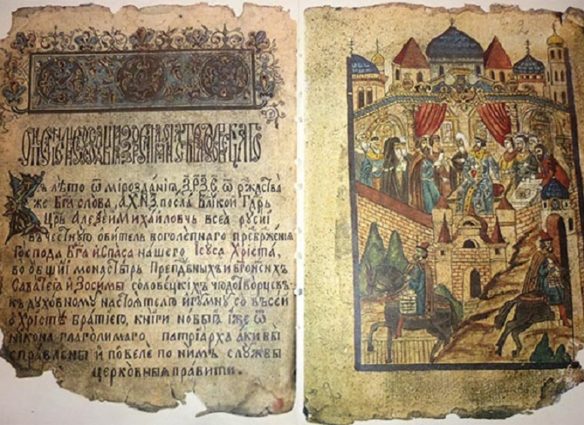 Въ лѣто ѿ мірозданїѧ ҂зрѯѕ ѿ ржⷭтва
же Бга слова, ҂ахнз посла Великой Гдрь
Црь Алеѯїи Михайловчь всеа русїи
въ честную обитель боголепнаго преображенїѧ
Господа Бга и Спаса нашего Ісуса Хрїста,
во обшїи монастырь Преподбныхъ и Бгоносныхъ
Саватїѧ и Зосимы соловецскихъ чюдотворцевъ
къ духовному настоѧтелю Игумну со всей
о Христѣ братїею, книги новыѧ їже ѿ
никона глаголимаго патрїарха аки бы
справлены и повеле по нимъ службы
церковныѧ правити.